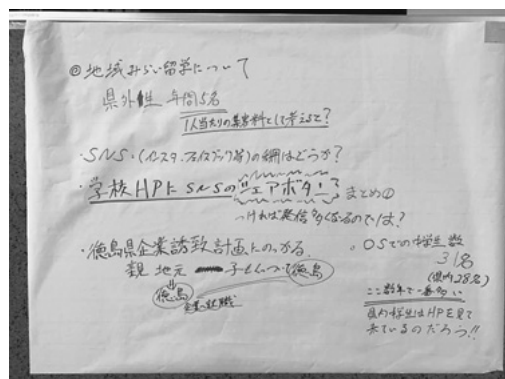 ◎地域みらい留学について
県外生 年間5名
1人当たりの募集料として考えると?
・SNS・(インスタ、フェイスブック等)の網はどうか?
・学校HPにSNSのシェアボタン まとめ①
つければ発信多くなるのでは?
・徳島県企業誘致計画にのっかる。
親 地元 子もついて徳島
徳島
企業へ就職
OSでの中学生数
31名
(県内28名)
ここ数年で一番多い
県内中学生はHPを見て
来ているのだろう!!